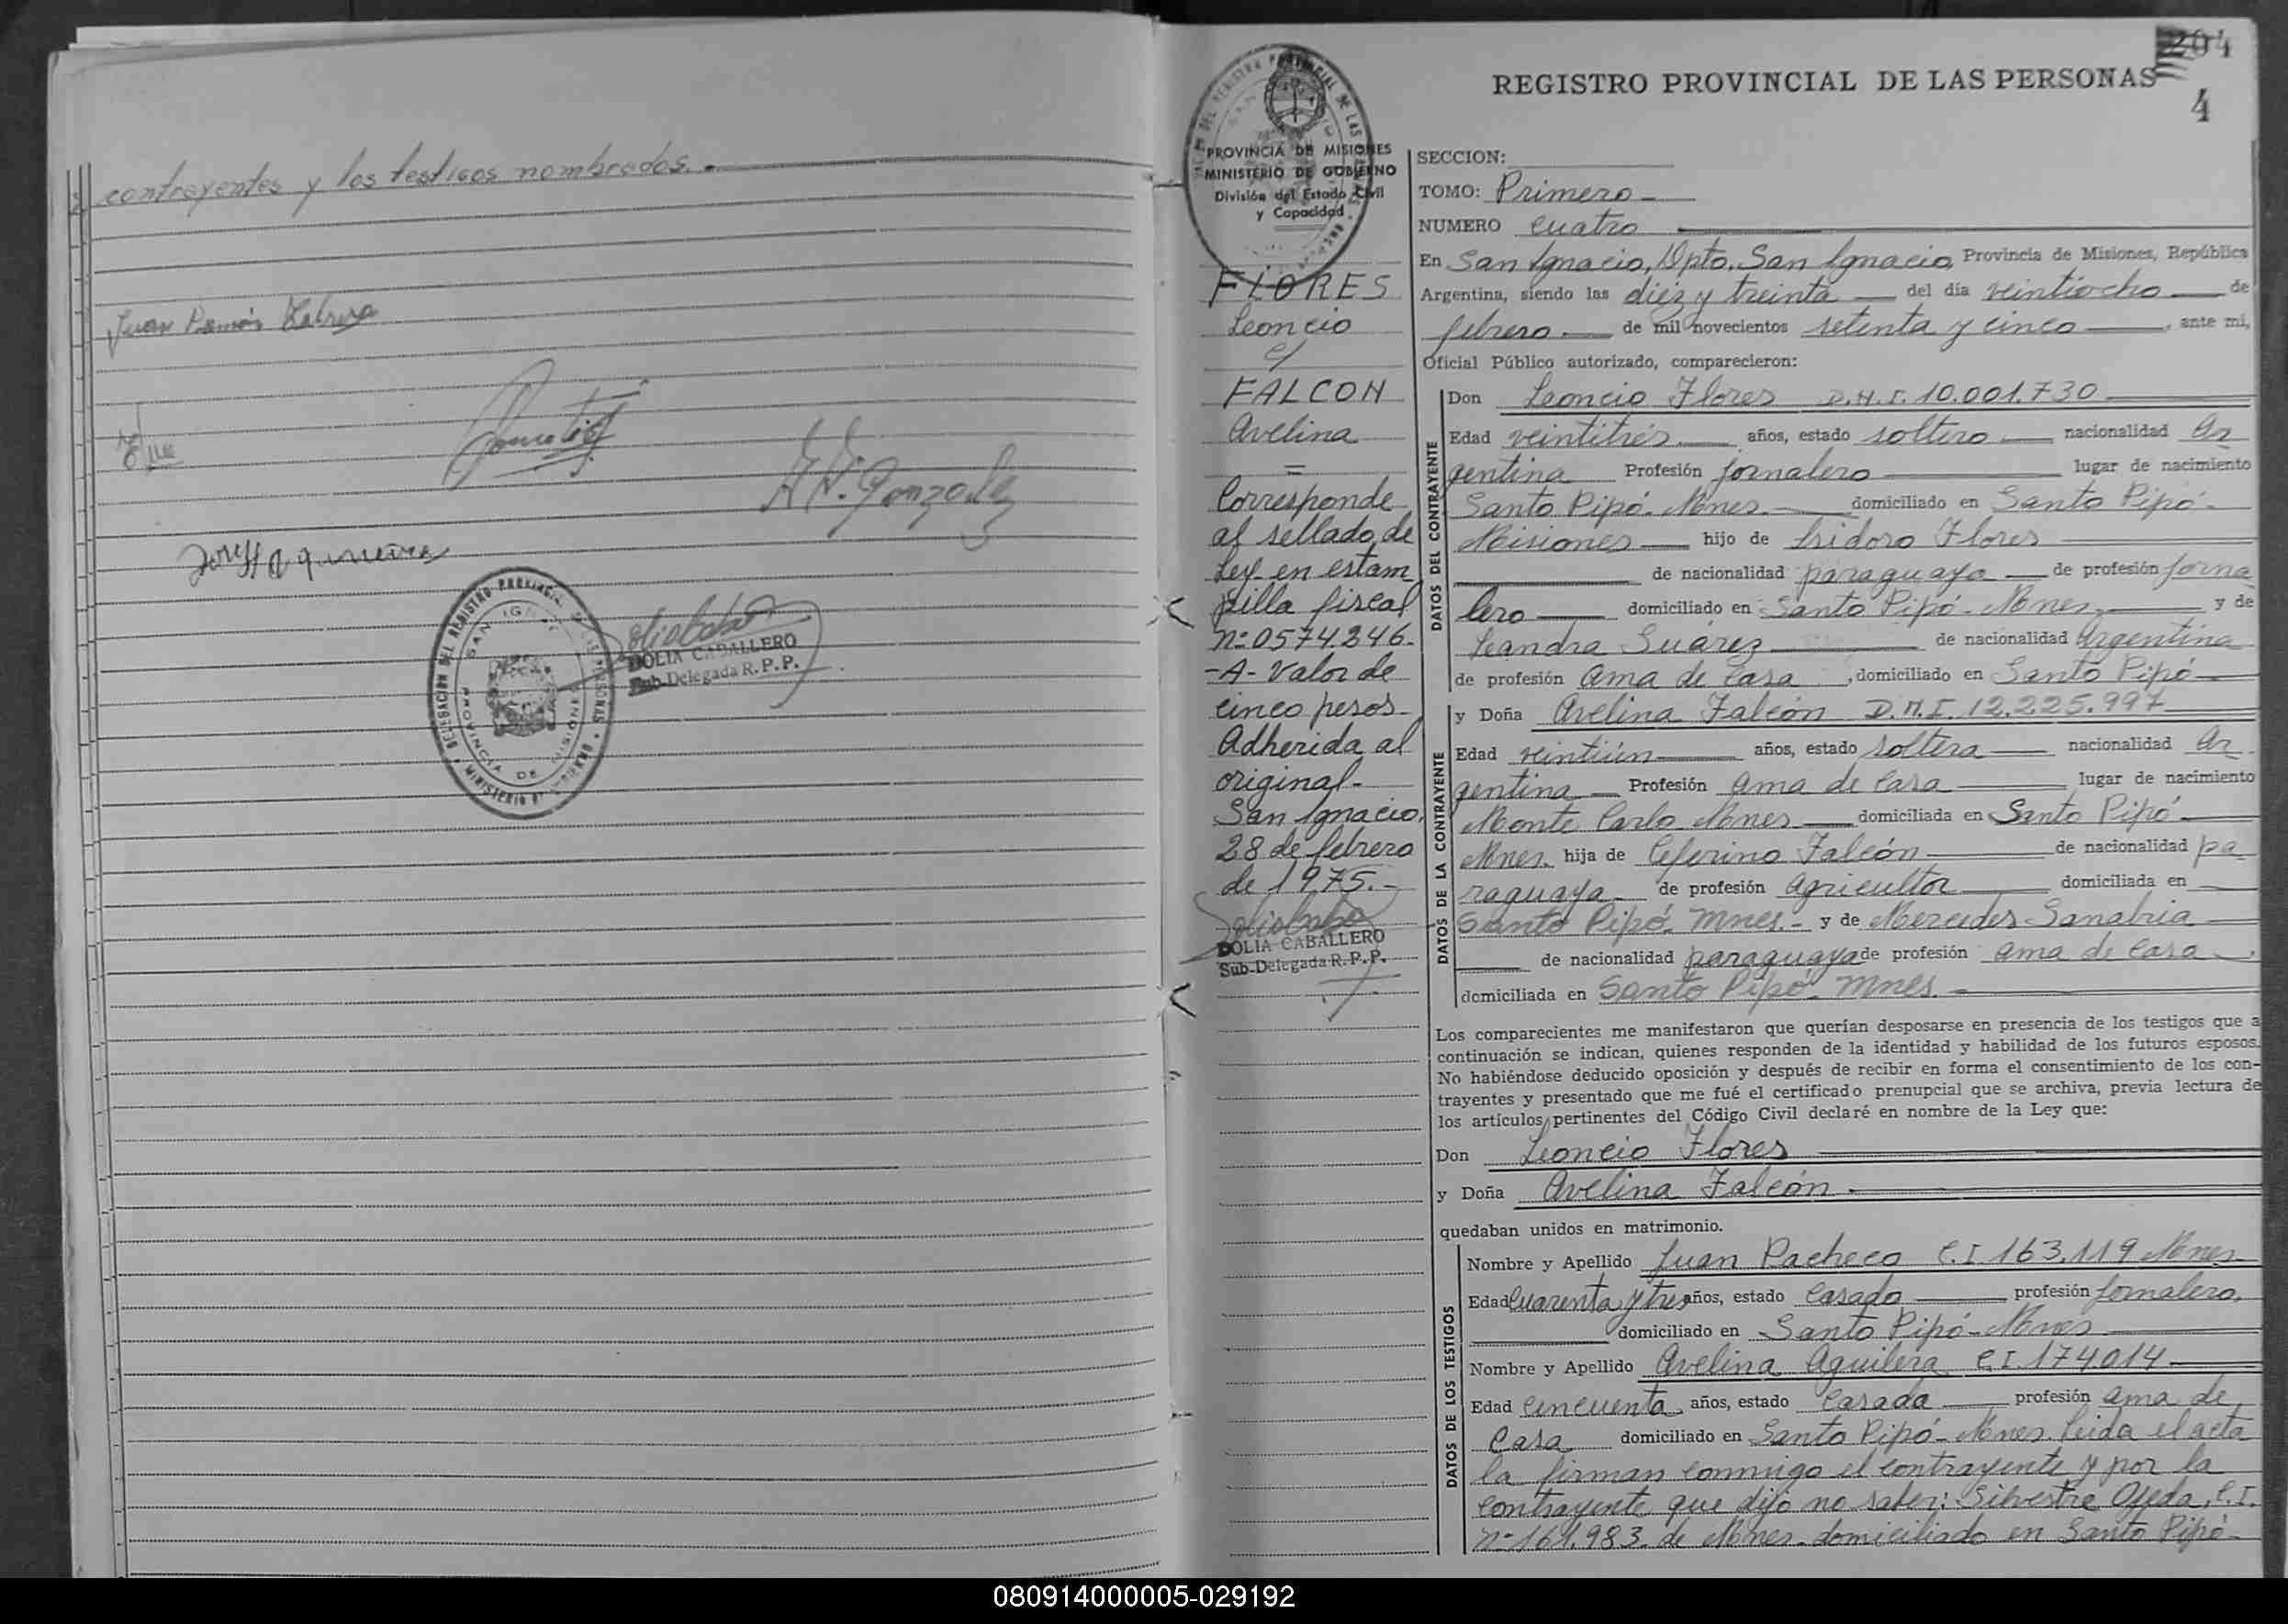 contrayentes y los testigos nombrados.
Juan Ramón Cabrera
H. N. Gonzalez
DELEGACION DEL REGISTRO PROVINCIAL DE LAS PERSONAS
SAN IGNACIO
PROVINCIA DE MISIONES
MINISTERIO DE GOBIERNO
DOLIA CABALLERO
Sub-Delegada R. P. P.
204
4
REGISTRO PROVINCIAL DE LAS PERSONAS
PROVINCIA DE MISIONES
MINISTERIO DE GOBIERNO
División del Estado Civil
y Capacidad
FLORES
Leoncio
c/
FALCON
Avelina
=
Corresponde
al sellado de
Ley en estam
pilla fiscal
nº 0574.246.
-A- Valor de
cinco pesos-
Adherida al
original-
San Ignacio,
28 de febrero
de 1975.-
DOLIA CABALLERO
Sub-Delegada R. P. P.
SECCION:
TOMO: Primero
NUMERO cuatro
En San Ignacio, Dpto. San Ignacio Provincia de Misiones, República
Argentina, siendo las diez y treinta del día veintiocho de
febrero de mil novecientos setenta y cinco, ante mí,
Oficial Público autorizado, comparecieron:
DATOS DEL CONTRAYENTE
Don Leoncio Flores D.N.I. 10.001.730
Edad veintitrés años, estado soltero nacionalidad Ar
gentina Profesión jornalero lugar de nacimiento
Santo Pipó- Mnes. domiciliado en Santo Pipó-
Misiones hijo de Isidoro Flores
de nacionalidad paraguaya de profesión jorna
lero domiciliado en Santo Pipó- Mnes. y de
Leandra Suárez de nacionalidad Argentina
de profesión ama de casa, domiciliado en Santo Pipó
DATOS DE LA CONTRAYENTE
y Doña Avelina Falcón D.N.I. 12.225.997
Edad veintiún años, estado soltera nacionalidad Ar
gentina Profesión ama de casa lugar de nacimiento
Monte Carlo Mnes domiciliada en Santo Pipó
Mnes. hija de Ceferino Falcón de nacionalidad pa
raguaya de profesión agricultor domiciliada en
Santo Pipó- Mnes.- y de Mercedes Sanabria
de nacionalidad paraguaya de profesión ama de casa,
domiciliada en Santo Pipó- Mnes.
Los comparecientes me manifestaron que querían desposarse en presencia de los testigos que a
continuación se indican, quienes responden de la identidad y habilidad de los futuros esposos.
No habiéndose deducido oposición y después de recibir en forma el consentimiento de los con-
trayentes y presentado que me fué el certificado prenupcial que se archiva, previa lectura de
los artículos pertinentes del Código Civil declaré en nombre de la Ley que:
Don Leoncio Flores
y Doña Avelina Falcón
quedaban unidos en matrimonio.
DATOS DE LOS TESTIGOS
Nombre y Apellido Juan Pacheco C.I. 163.119 Mnes-
Edad Cuarenta y tres años, estado casado profesión jornalero,
domiciliado en Santo Pipó- Mnes
Nombre y Apellido Avelina Aguilera C.I. 174.014
Edad cincuenta años, estado casada profesión ama de
casa domiciliado en Santo Pipó- Mnes. Leida el acta
la firman conmigo el contrayente y por la
contrayente que dijo no saber: Silvestre Ojeda, C.I.
nº 161.983 de Mnes. domiciliado en Santo Pipó-
080914000005-029192